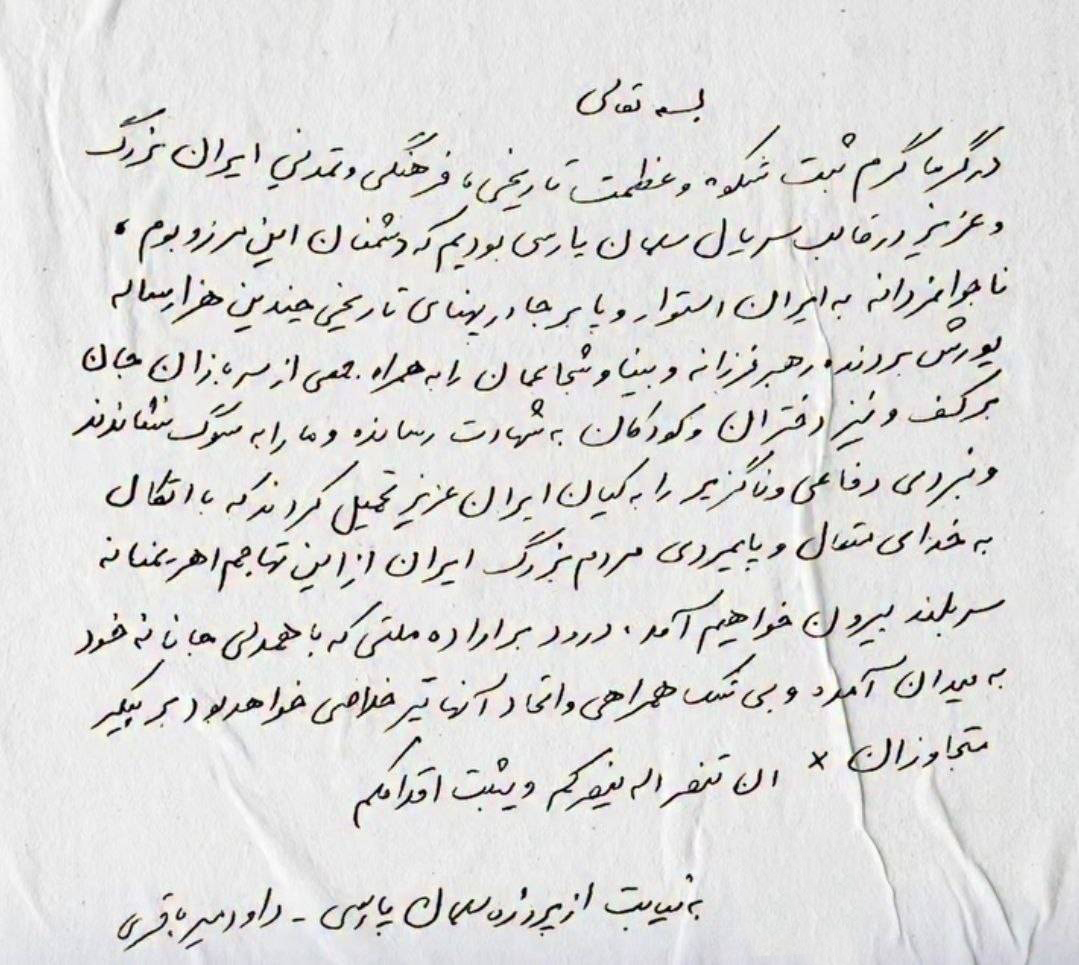 بسمه تعالی
در گرما گرم ثبت شکوه و عظمت تاریخی، فرهنگی و تمدنی ایران بزرگ
و عزیز در قالب سریال سلمان پارسی بودیم که دشمنان این مرز و بوم،
ناجوانمردانه به ایران استوار و پا بر جا در پهنای تاریخی چندین هزار ساله
یورش بردند، رهبر فرزانه و بینا و شجاعمان را به همراه جمعی از سربازان جان
بر کف و نیز دختران و کودکان به شهادت رسانده و ما را به سوگ نشاندند
و نبردی دفاعی و ناگزیر را به کیان ایران عزیز تحمیل کردند که با اتکال
به خدای متعال و پایمردی مردم بزرگ ایران از این تهاجم اهریمنانه
سربلند بیرون خواهیم آمد. درود بر اراده ملتی که با همدلی جانانه خود
به میدان آمده و بی شک همراهی و اتحاد آنها تیر خلاصی خواهد بود بر پیکر
متجاوزان × ان تنصر اله ینصرکم و یثبت اقدامکم
به نیابت از پروژه سلمان پارسی - داود میرباقری